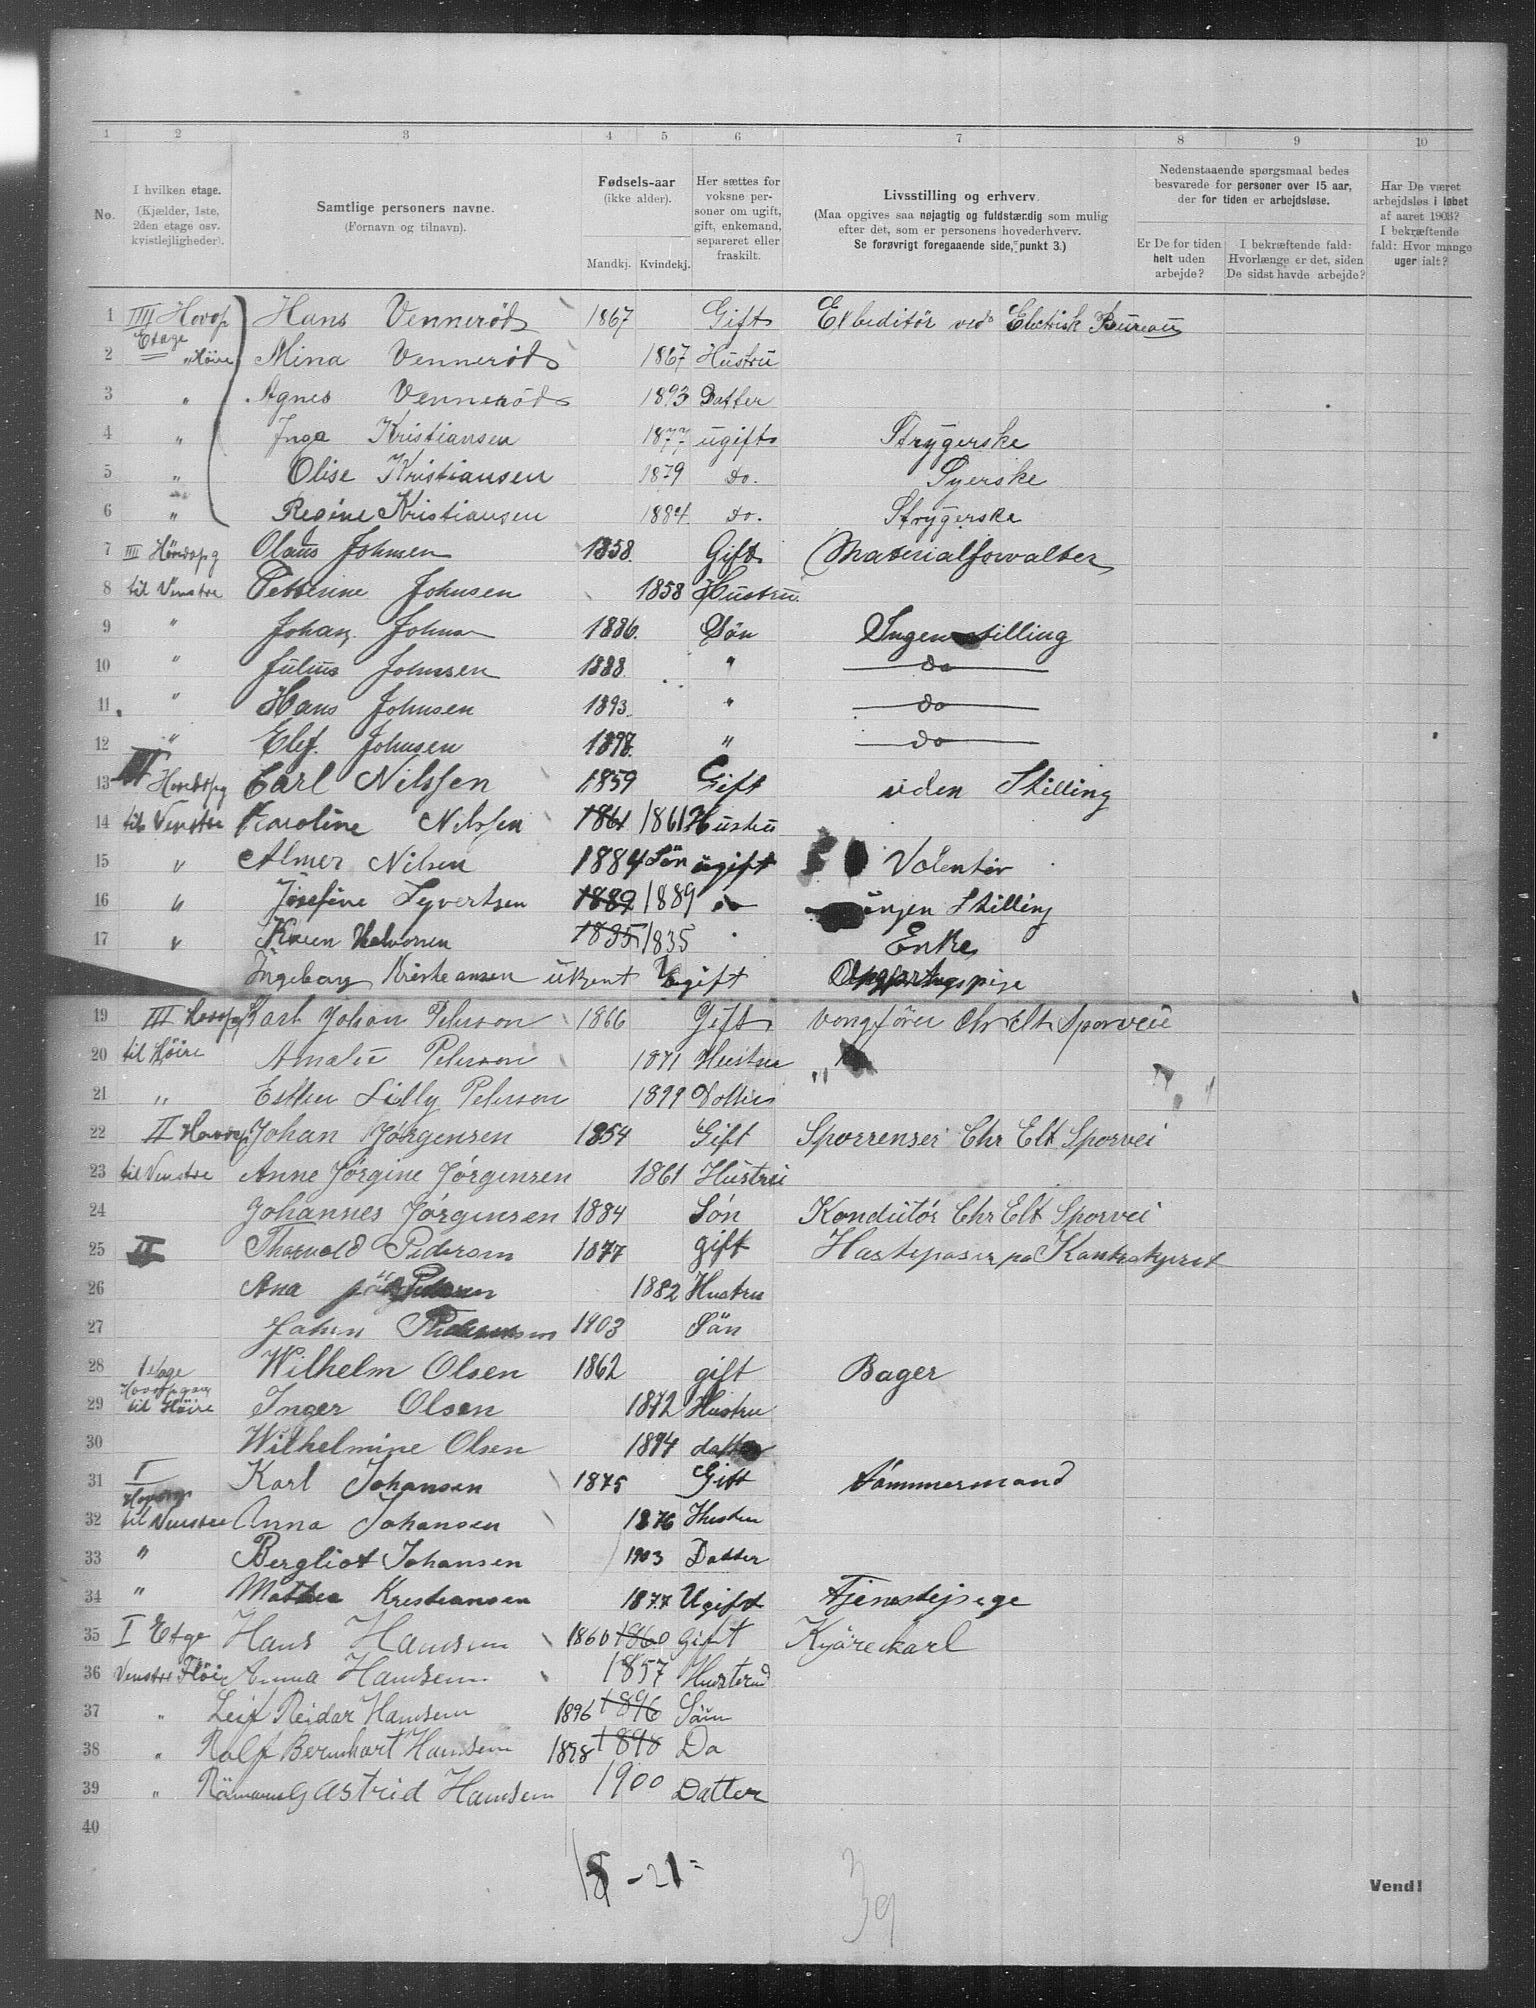 1 2 3 4 5 6 7 8 9 10
No.
I hvilken etage. (Kjælder, 1ste, 2den etage osv. kvistlejligheder).
Samtlige personers navne. (Fornavn og tilnavn).
Fødsels-aar (ikke alder). Mandkj. Kvindekj.
Her sættes for voksne personer om ugift, gift, enkemand, separeret eller fraskilt.
Livsstilling og erhverv. (Maa opgives saa nøjagtig og fuldstændig som mulig efter det, som er personens hovederhverv. Se forøvrigt foregaaende side, punkt 3.)
Nedenstaaende spørgsmaal bedes besvarede for personer over 15 aar, der for tiden er arbejdsløse.
Er De for tiden helt uden arbejde?
I bekræftende fald: Hvorlænge er det, siden De sidst havde arbejde?
Har De været arbejdsløs i løbet af aaret 1903? I bekræftende fald: Hvor mange uger ialt?
1 IIII Hovop Etage Hans Vennerød 1867 Gift Exbeditör ved Elektrisk Bureau
2 " Höire Mina Vennerød 1867 Hustru
3 " Agnes Vennerød 1893 Datter
4 " Inga Kristiansen 1877 ugift Strygerske
5 " Olise Kristiansen 1879 do. Syerske
6 " Regine Kristiansen 1884 do. Strygerske
7 IIII Olaus Johnsen 1858. Gift Materialforvalter
8 til Venstre Petterine Johnsen 1858 Hustru.
9 " Johan Johnsen 1886. Søn Ingen stilling
10 " Julius Johnsen 1888 " do
11 " Hans Johnsen 1893. " do
12 " Elef. Johnsen 1898. " do
13 III Carl Nilssen 1859 Gift uden Stilling
14 til Venstre Karoline Nilssen 1861 1861 Hustru
15 " Almer Nilsen 1884 Søn ugift Volentör
16 " Josefine Syvertsen 1889 1889 do ingen Stilling
17 " Karen Halvorsen 1835 1835 " Enke
Ingeborg Kristiansen ukjent Ugift Oppvartnigspige
19 III Karl Johan Peterson 1866 Gift Vongförer Chr Elt Sporvei
20 til Höire Amalie Peterson 1871 Hustru "
21 " Esther Lilly Peterson 1899 Datter
22 II Johan Jörgensen 1854 Gift Sporrenser Chr Elt Sporvei
23 til Venstre Anne Jörgine Jörgensen 1861 Hustru
24 Johannes Jörgensen 1884 Sön Kondutör Chr Elt Sporvei
25 II Thorvald Pedersen 1877 gift
26 Ana Pedersen 1882 Hustru
27 Johan Pedersen 1903 Sön
28 1 etage Wilhelm Olsen 1862 gift Bager
29 til Höire Inger Olsen 1872 Hustru
30 Wilhelmine Olsen 1894 datter
31 I Karl Johansen 1875 Gift Tömmermand
32 til Venstre Anna Johansen 1876 Hustru
33 " Bergliot Johansen 1903 Datter
34 " Mathea Kristiansen 1877 Ugift Tjenestepige
35 I Etge Hans Hansen 1860 1860 Gift Kjörekarl
36 Venstre Flöi Anna Hansen 1857 Husteru
37 " Leif Reidar Hansen 1896 1896 Sön
38 " Rolf Bernhart Hansen 1898 1898 Do
39 " Astrid Hansen 1900 Datter
40
18 - 21 =
39
Vend!